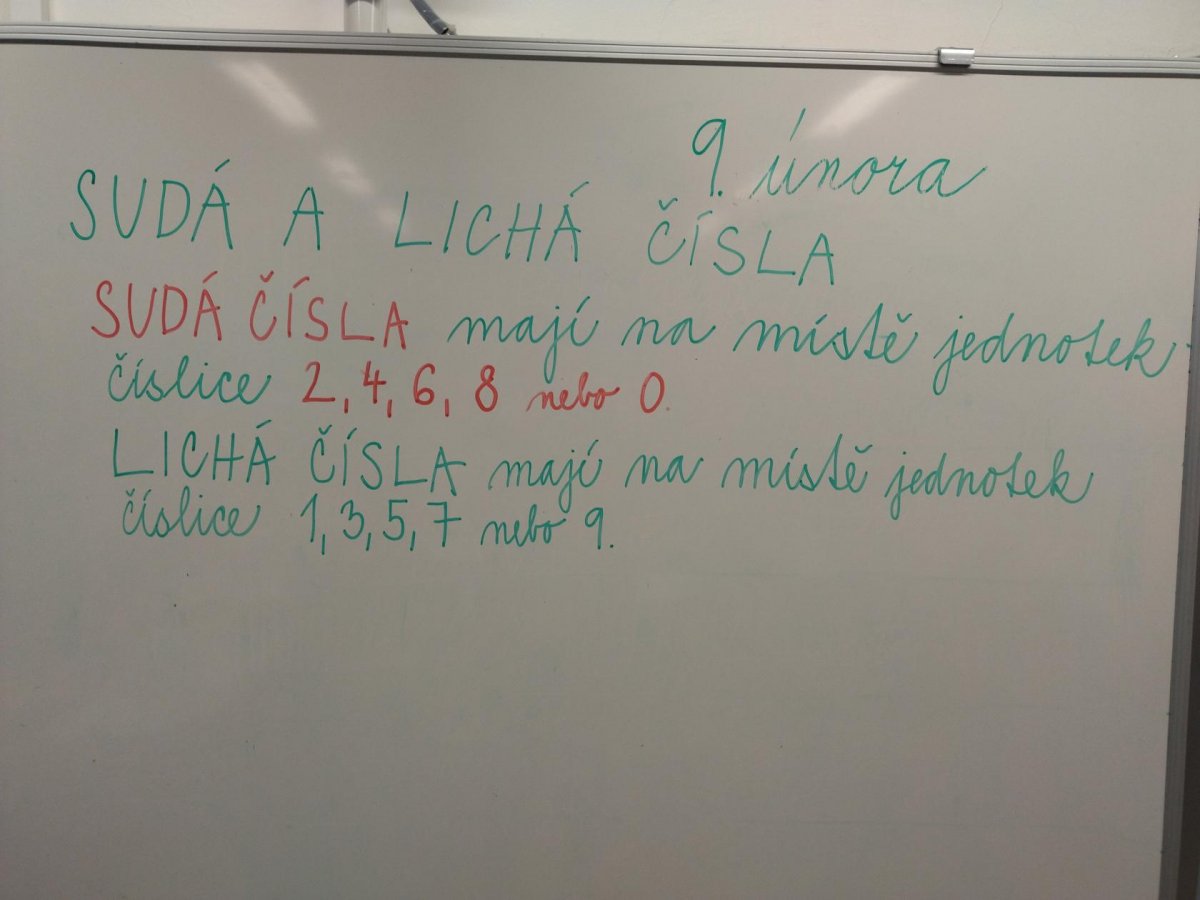 9. února
SUDÁ A LICHÁ ČÍSLA
SUDÁ ČÍSLA mají na místě jednotek
číslice 2, 4, 6, 8 nebo 0.
LICHÁ ČÍSLA mají na místě jednotek
číslice 1, 3, 5, 7 nebo 9.